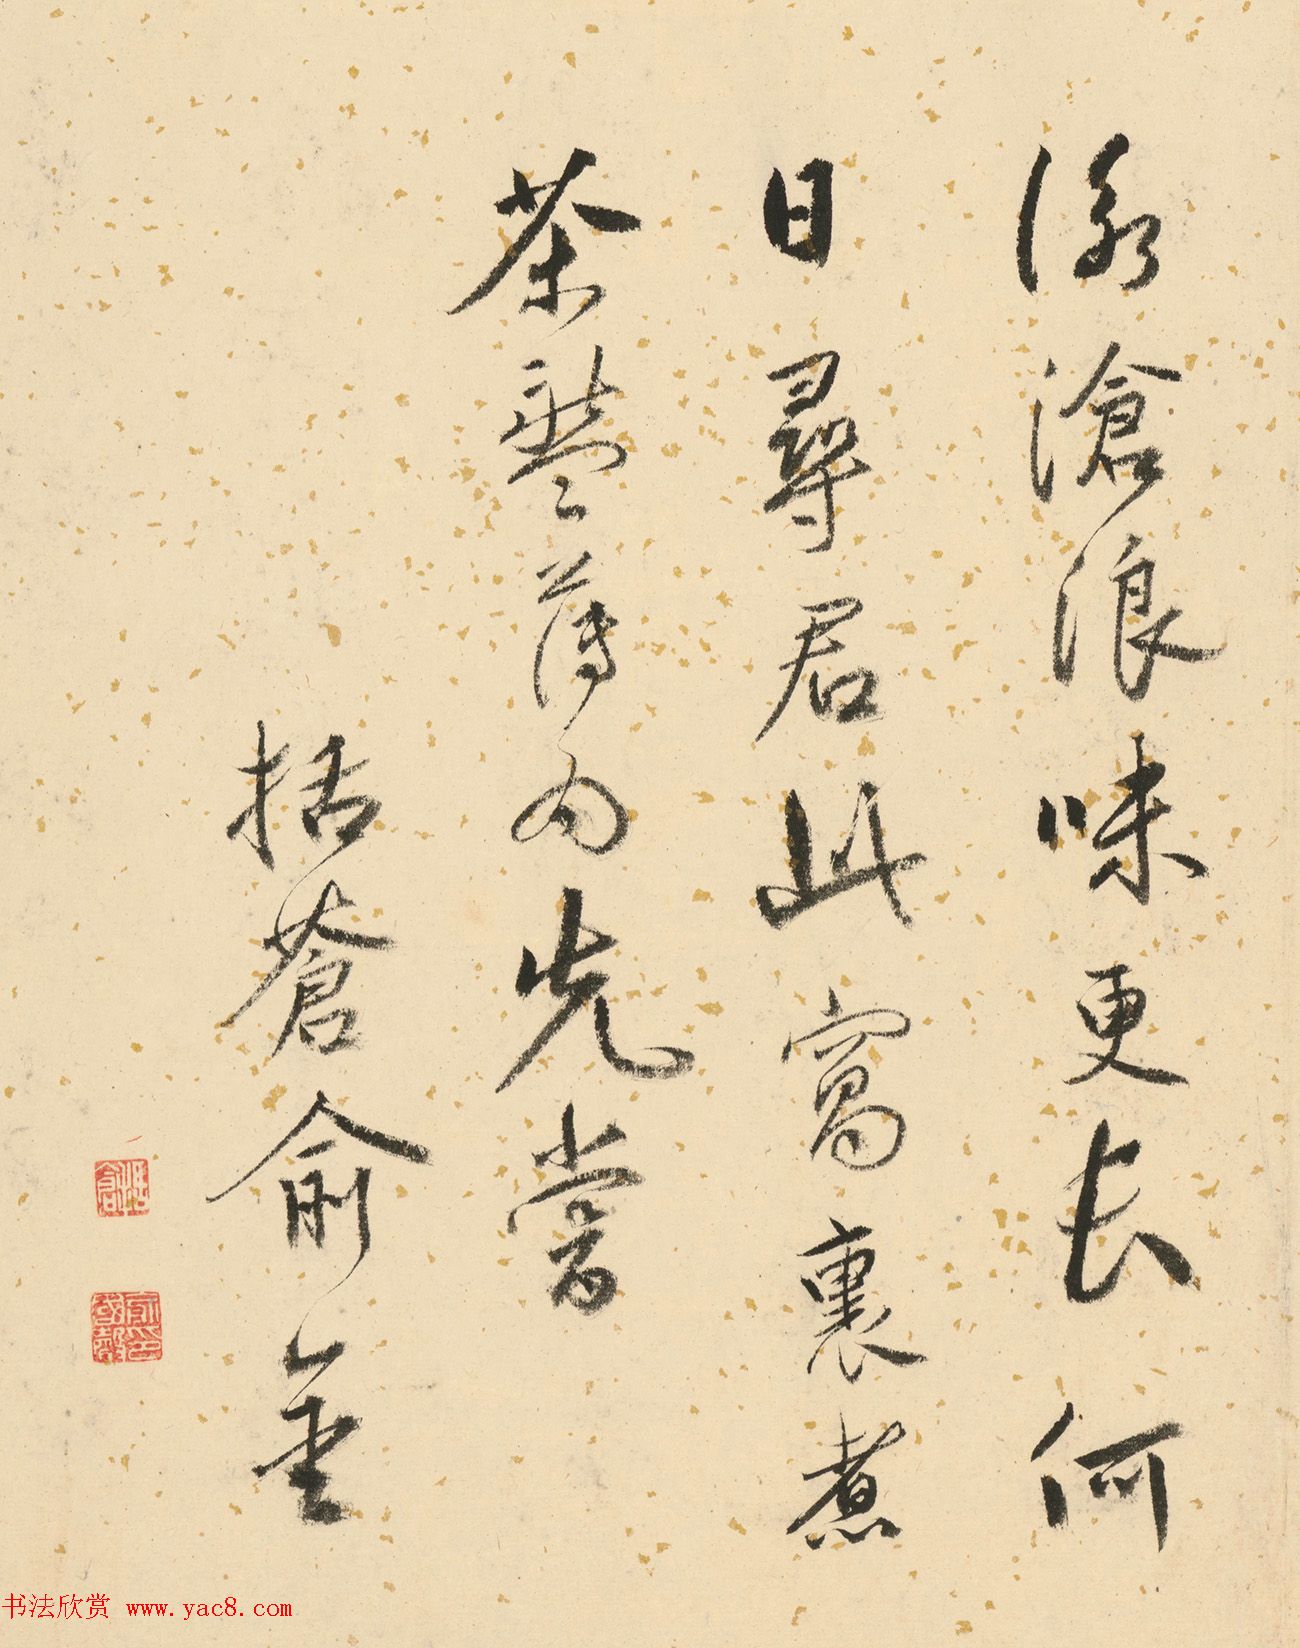 詠滄浪味更長何
日尋君此窩裏煮
茶盤薄為先嘗
括蒼俞
书法欣赏 www.yac8.com